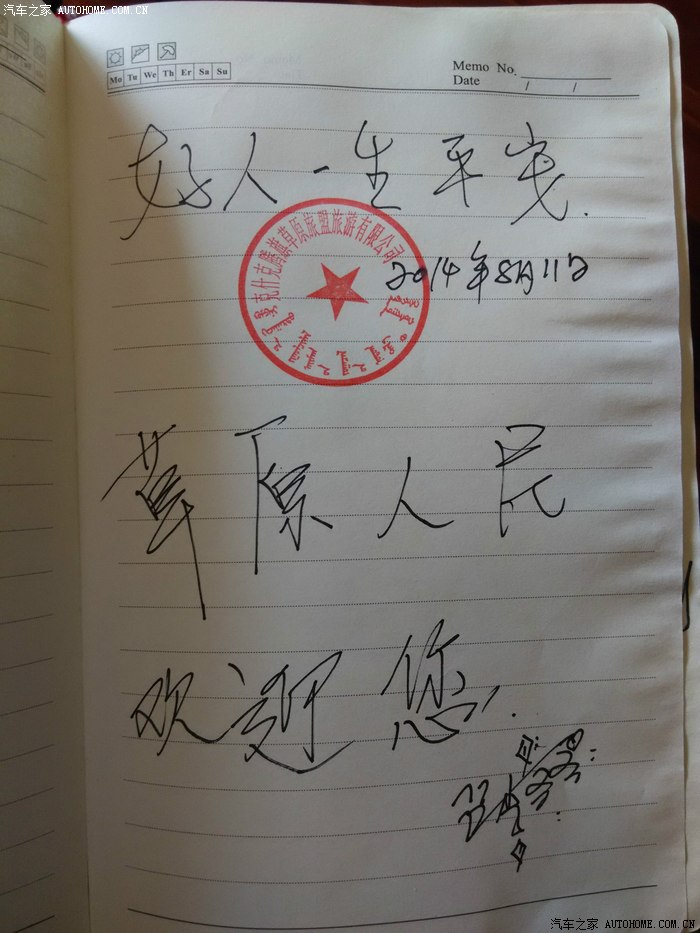 汽车之家 AUTOHOME.COM.CN
Mo Tu We Th Fr Sa Su
Memo No.
Date / /
好人一生平安.
克什克腾蒙草原旅盟旅游有限公司
2014年8月11日
草原人民
欢迎您.
汽车之家 AUTOHOME.COM.CN